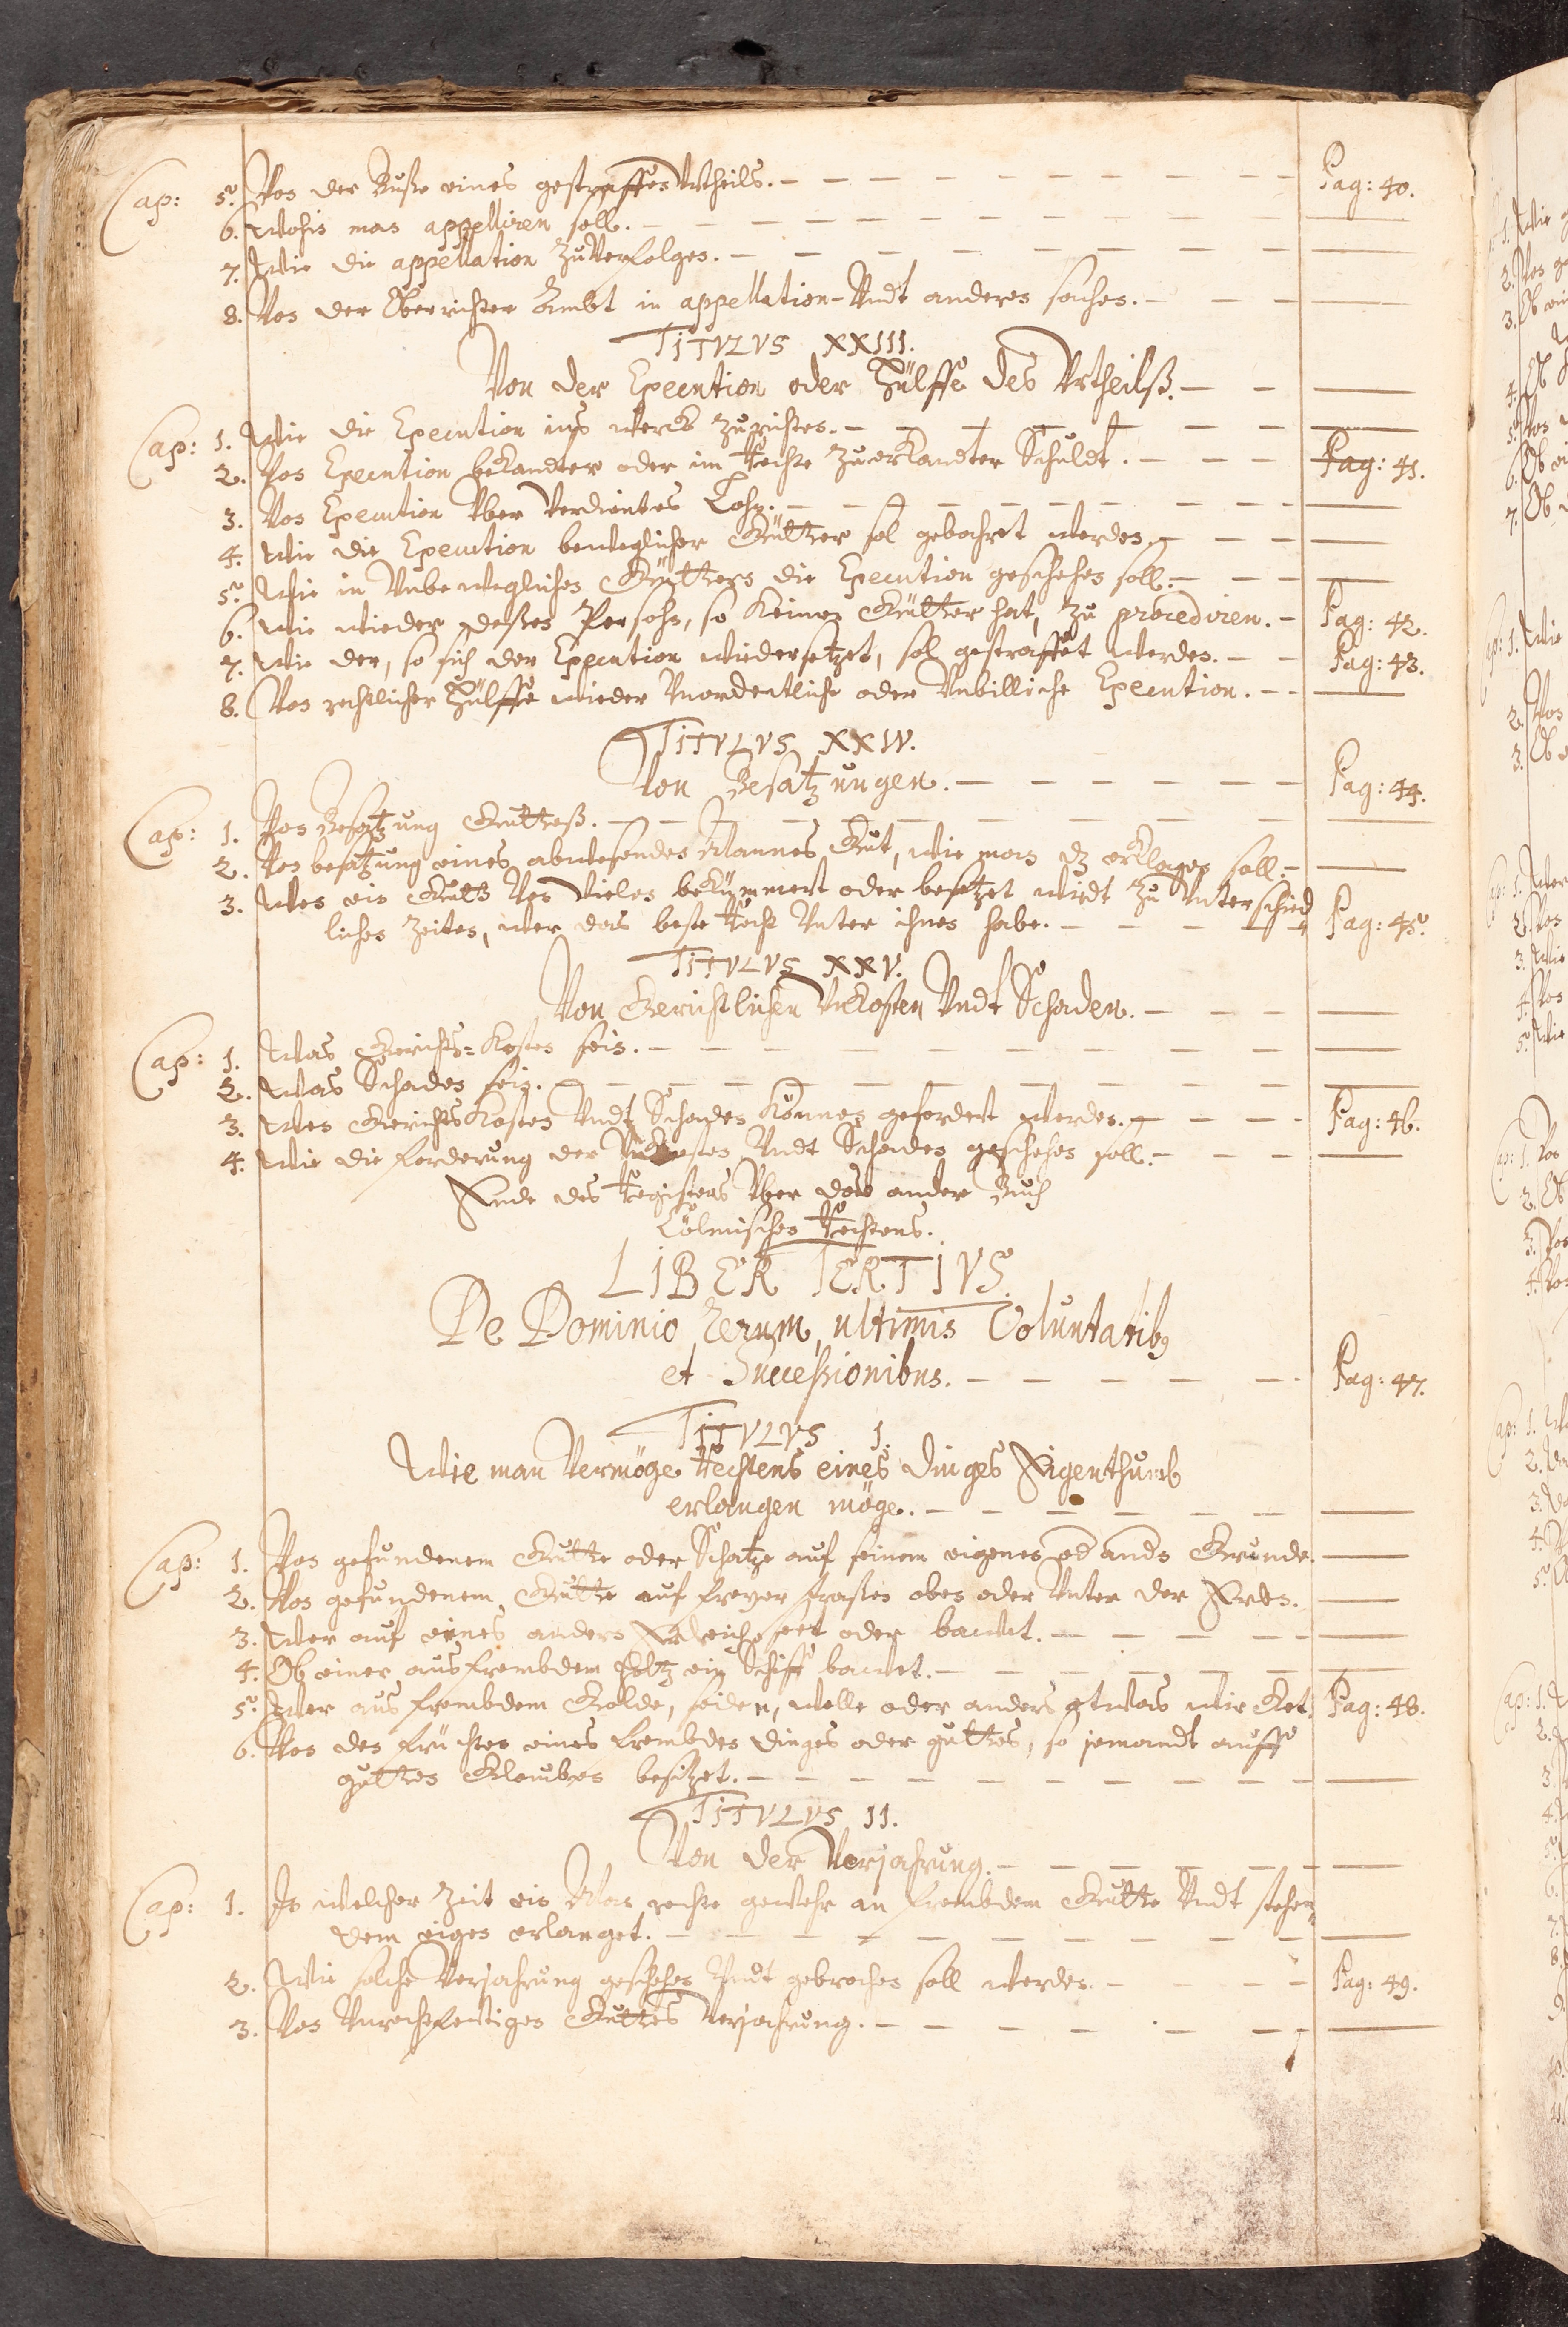 Cap: 5. Von der Buße eines gestrafften Urtheils. Pag: 40.
6. Wohin man appelliren soll.
7. Wie die appellation zu Verfolgen.
8. Von der Oberrichter Ambt in appellation-Vndt anderen sachen.
TITVLVS XXIII.
Von der Execution oder Hülffe des Vrtheilß.
Cap: 1. Wie die Execution ins werck zurichten.
2. Von Execution bekandter oder im Rechte zuerkandter Schuldt. Pag: 41.
3. Von Execution Vber Verdientes Lohn.
4. Wie die Execution beweglicher Gütter sol gebahret werden.
5. Wie in Vnbeweglichen Güttern die Execution geschehen soll.
6. Wie wieder deßen Persohn, so keiner Gütter hat, zu procediren. Pag: 42.
7. Wie der, so sich der Execution wiedersetzet, sol gestraffet werden. Pag: 43.
8. Von rechtlicher Hülffe wieder Vnordentliche oder Vnbilliche Execution.
TITVLVS XXIV.
Von Besatzungen. Pag: 44.
Cap: 1. Von Besatzung Gutteß.
2. Von besatzung eines abwesenden Mannes Gut, wie man dz erklagen soll.
3. Wen ein Gutt Von Vielen bekümmert oder besetzet wirdt zu Vnterschied
lichen Zeiten, wer das beste Recht Vnter ihnen habe. Pag: 45.
TITVLVS XXV.
Von Gerichtlichen Vnkosten Vndt Schaden.
Cap: 1. Was Gerichts-Kosten sein.
2. Was Schaden sein.
3. Wen GerichtsKosten Vndt Schaden Können gefordert werden. Pag: 46.
4. Wie die forderung der Vnkosten Vndt Schaden geschehen soll.
Ende des Registers Vber das ander Buch
Cölmischen Rechtens.
LIBER TERTIVS.
De Dominio Rerum, ultimis Voluntatibg
et Successionibus. Pag: 47.
TITVLVS I.
Wie man Vermöge Rechtens eines dinges Eigenthumb
erlangen möge.
Cap: 1. Von gefundenem Gutte oder Schatze auf seinem eigenen od ands Grunde.
2. Von gefundenem Gutte auf freyer straßen oben oder Vnter der Erden.
3. Wer auf eines andern Erdreich seet oder bawet.
4. Ob einer aus frembdem Holtz ein Schiff bawet.
5. Wer aus frembdem Golde, seiden, wolle oder anders etwas wircket. Pag: 48.
6. Von den früchten eines frembden dinges oder guttes, so jemandt auff
gutten Glauben besitzet.
TITVLVS II.
Von der Verjahrung.
Cap: 1. In welcher Zeit ein Man rechte gewehr an frembdem Gutte Vndt stehen
dem eigen erlanget.
2. Wie solche Verjahrung geschehen Vndt gebrochen soll werden. Pag: 49.
3. Von Vnrechtfertigen Guttes Verjahrung.